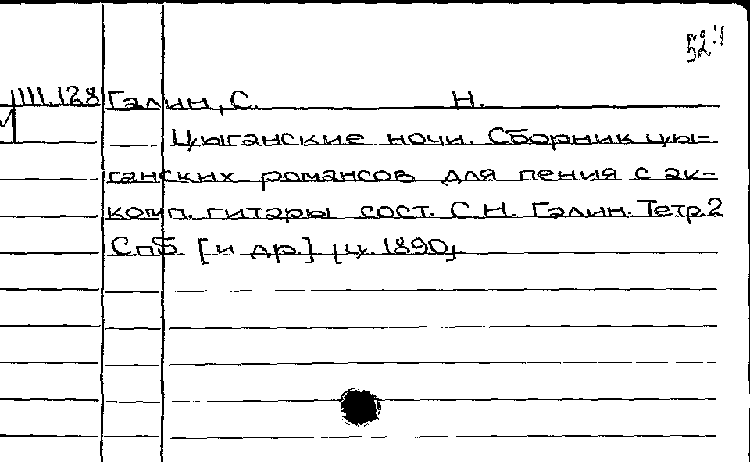 52.1
III.128 Галин, С. Н.
Цыганские ночи. Сборник цы=
ганских романсов для пения с ак-
комп. гитары сост. С.Н. Галин. Тетр.2
Спб. [и др.] [ц. 1890]